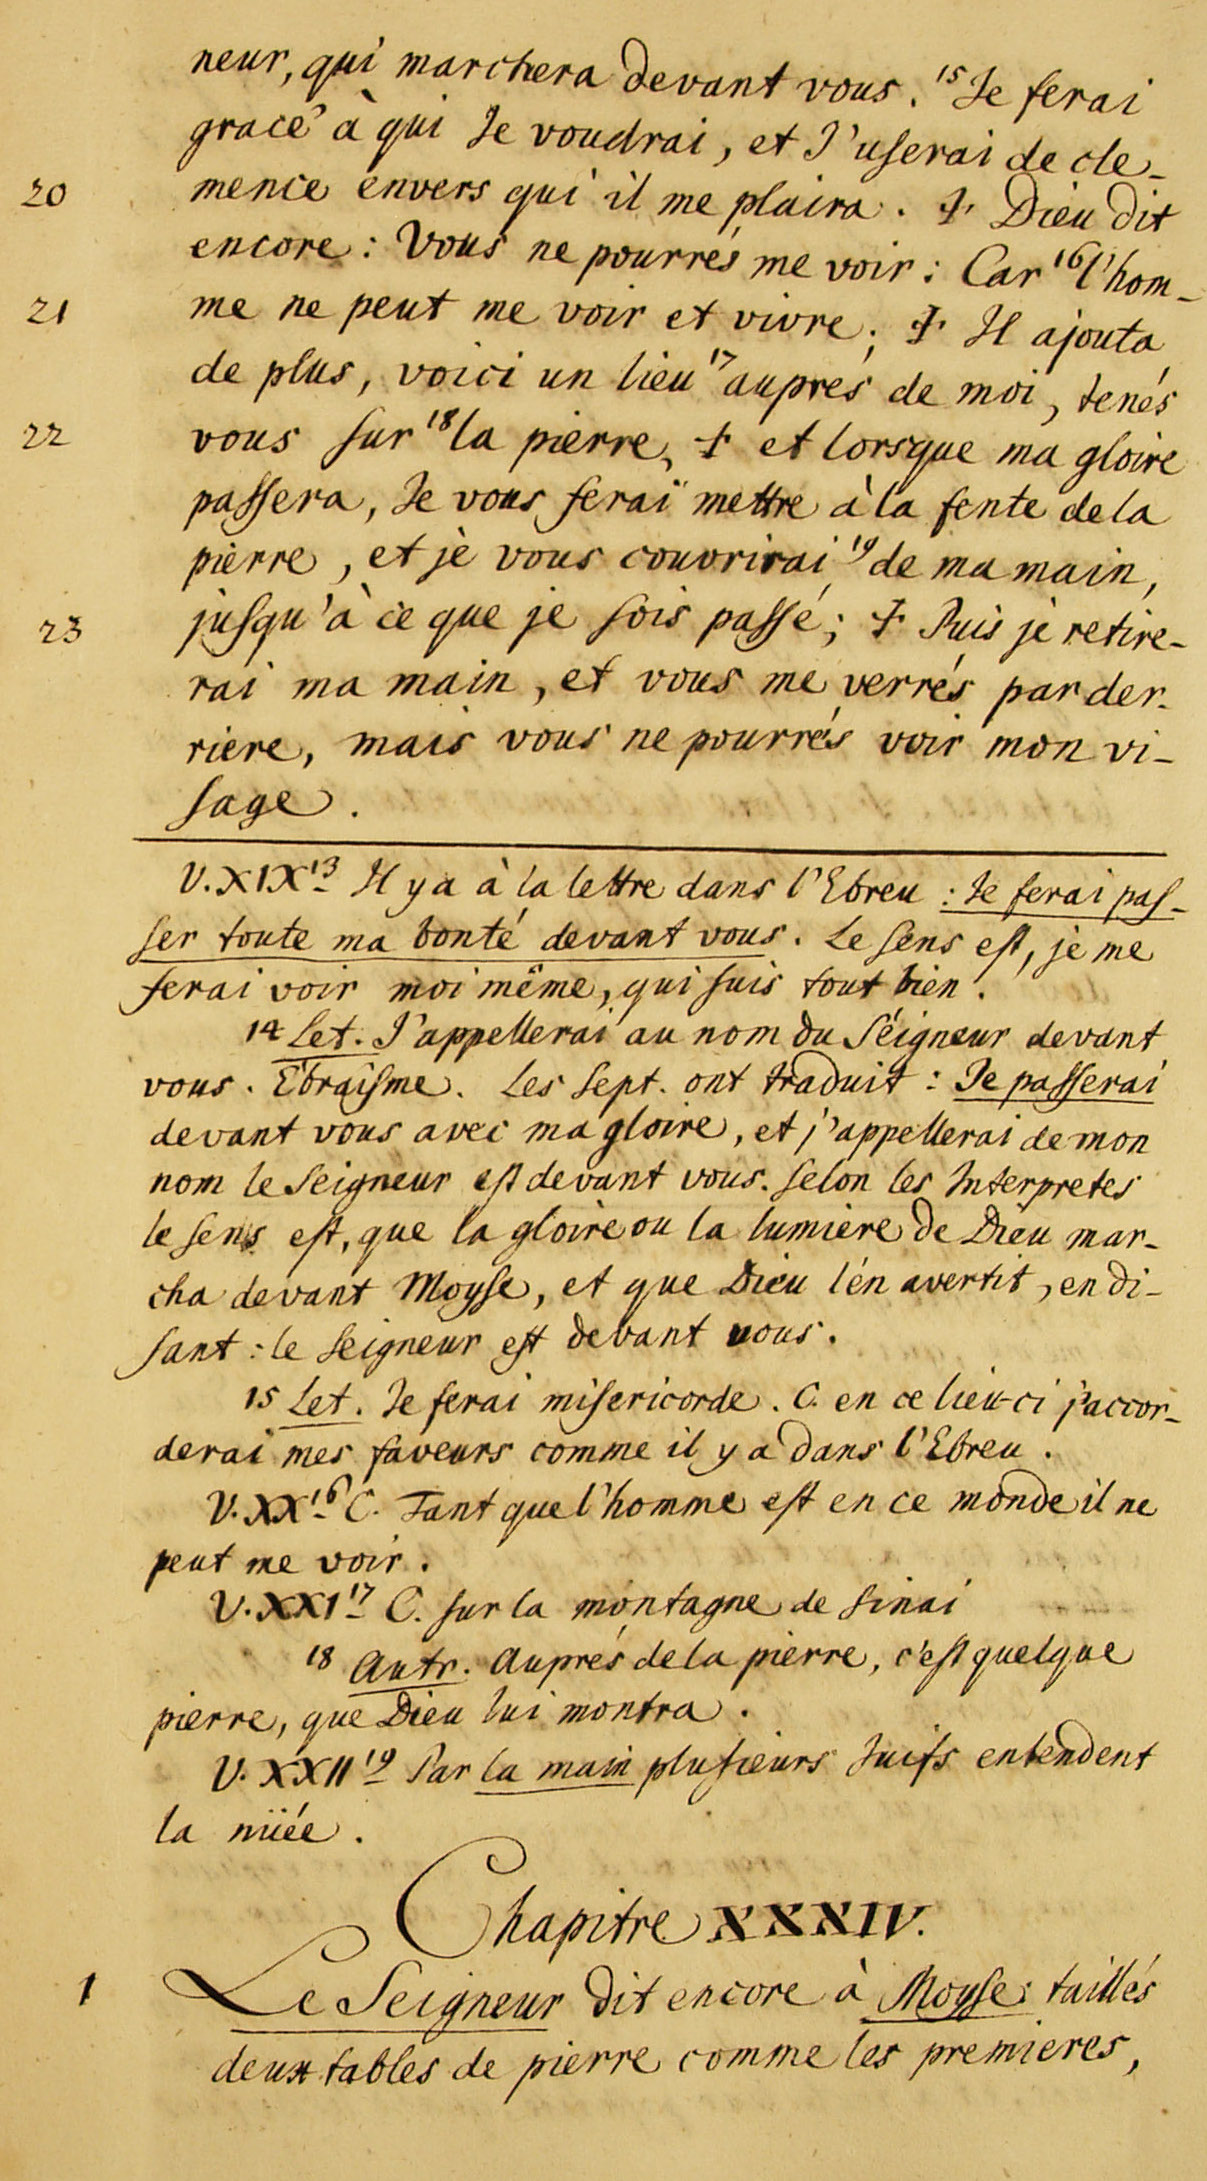 neur, qui marchera devant vous. 15 Je ferai
grace à qui Je voudrai, et J'userai de cle-
20 mence envers qui il me plaira. ☩ Dieu dit
encore: Vous ne pourrés me voir: Car 16 l'hom-
21 me ne peut me voir et vivre; ☩ Il ajouta
de plus, voici un lieu 17 auprés de moi, tenés
22 vous sur 18 la pierre, ☩ et lorsque ma gloire
passera, Je vous ferai mettre à la fente de la
pierre, et je vous couvrirai 19 de ma main,
23 jusqu'à ce que je sois passé; ☩ Puis je retire-
rai ma main, et vous me verrés par der-
riere, mais vous ne pourrés voir mon vi-
sage.
V. XIX 13 Il y a à la lettre dans l'Ebreu: Je ferai pas-
ser toute ma bonté devant vous. Le sens est, je me
ferai voir moi même, qui suis tout bien.
14 Let. J'appellerai au nom du Séigneur devant
vous. Ebraisme. Les Sept. ont traduit: Je passerai
devant vous avec ma gloire, et j'appellerai de mon
nom le Seigneur est devant vous. Selon les Interpretes
le sens est, que la gloire ou la lumiere de Dieu mar-
cha devant Moyse, et que Dieu l'en avertit, en di-
sant: le Seigneur est devant vous.
15 Let. Je ferai misericorde. C. en ce lieu-ci j'accor-
derai mes faveurs comme il y a dans l'Ebreu.
V. XX 16 C. Tant que l'homme est en ce monde il ne
peut me voir.
V. XXI 17 C. sur la montagne de Sinai
18 Autr. Auprés de la pierre, c'est quelque
pierre, que Dieu lui montra.
V. XXII 19 Par la main plusieurs Juifs entendent
la nüée.
Chapitre XXXIV.
1 Le Seigneur dit encore à Moyse: taillés
deux tables de pierre comme les premieres,